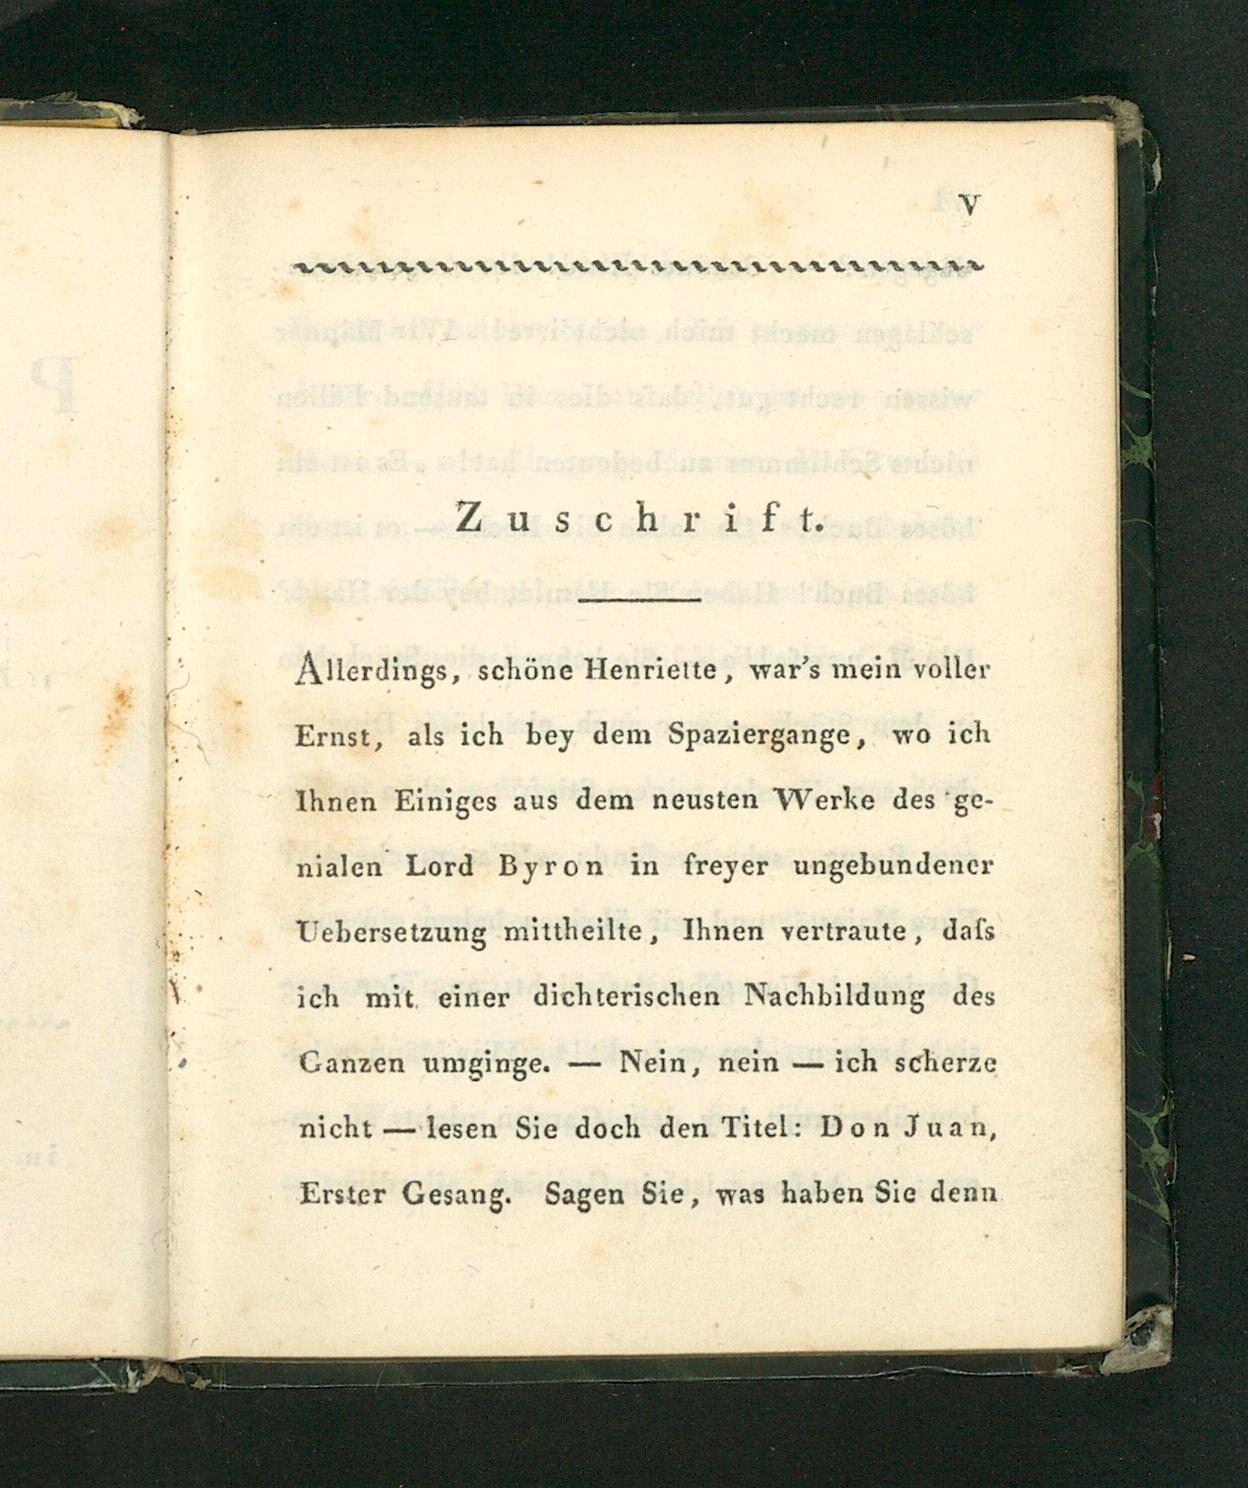 V
Zuschrift.
Allerdings, schöne Henriette, war's mein voller
Ernst, als ich bey dem Spaziergange, wo ich
Ihnen Einiges aus dem neusten Werke des ge-
nialen Lord Byron in freyer ungebundener
Uebersetzung mittheilte, Ihnen vertraute, daſs
ich mit einer dichterischen Nachbildung des
Ganzen umginge. — Nein, nein — ich scherze
nicht — lesen Sie doch den Titel: Don Juan,
Erster Gesang. Sagen Sie, was haben Sie denn